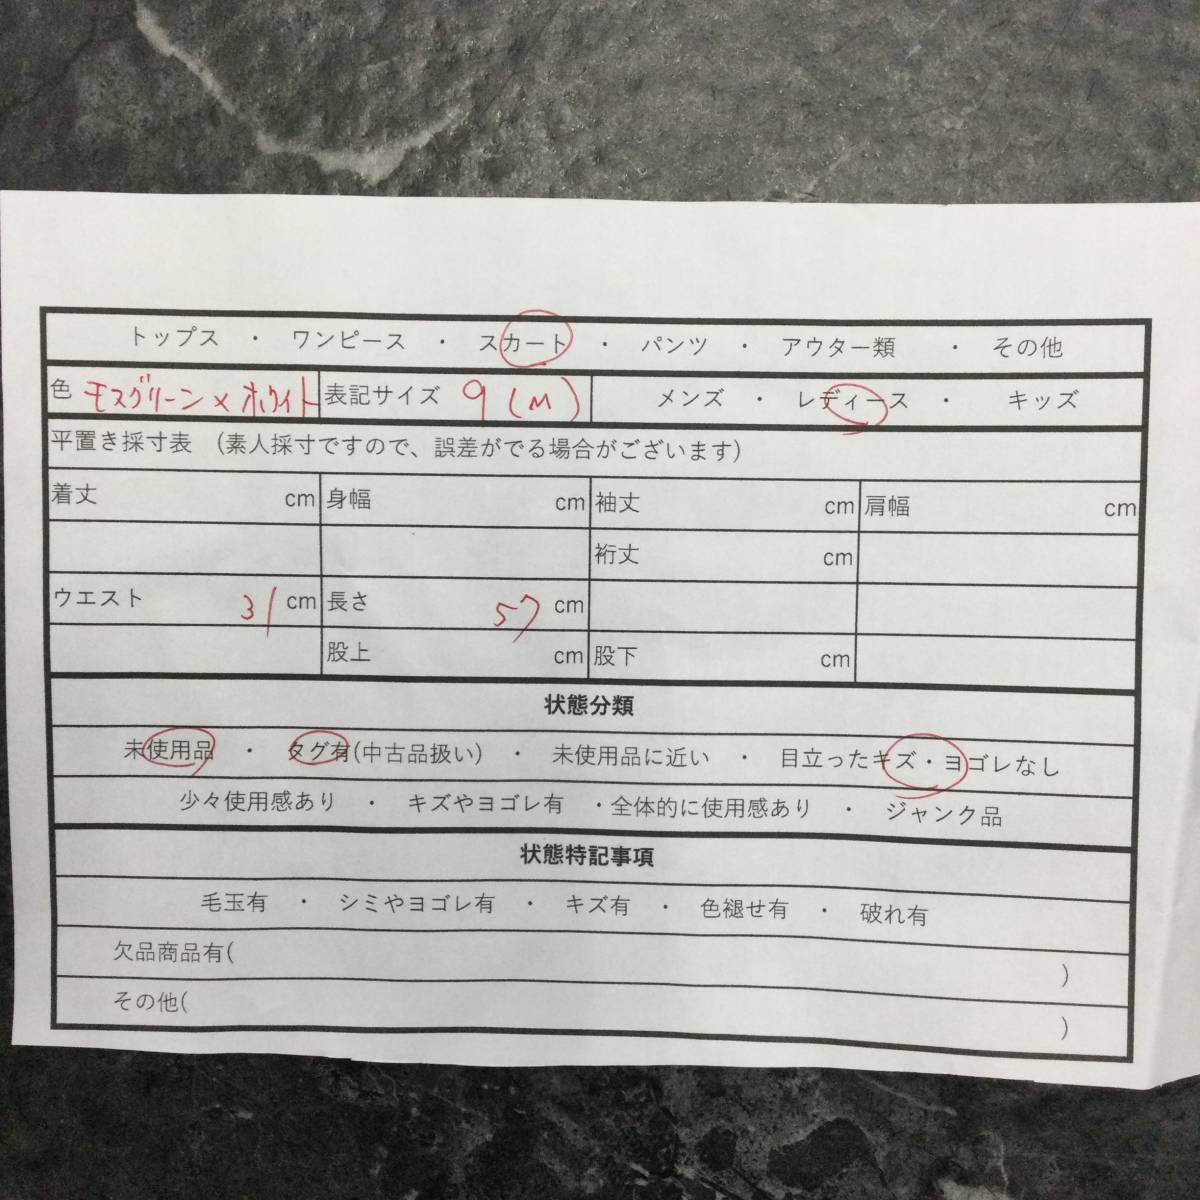 トップス ・ ワンピース ・ スカート ・ パンツ ・ アウター類 ・ その他
色 モスグリーン×ホワイト 表記サイズ 9(M) メンズ ・ レディース ・ キッズ
平置き採寸表 (素人採寸ですので、誤差がでる場合がございます)
着丈 cm 身幅 cm 袖丈 cm 肩幅 cm
裄丈 cm
ウエスト 31 cm 長さ 57 cm
股上 cm 股下 cm
状態分類
未使用品 ・ タグ有(中古品扱い) ・ 未使用品に近い ・ 目立ったキズ・ヨゴレなし
少々使用感あり ・ キズやヨゴレ有 ・全体的に使用感あり ・ ジャンク品
状態特記事項
毛玉有 ・ シミやヨゴレ有 ・ キズ有 ・ 色褪せ有 ・ 破れ有
欠品商品有( )
その他( )